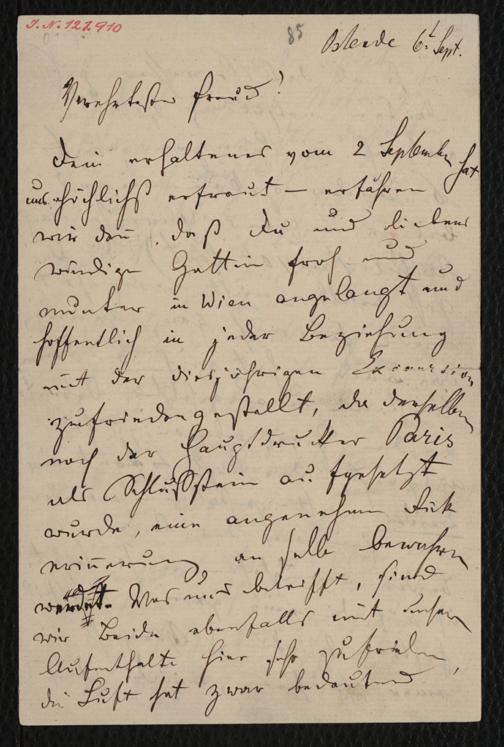 J.N. 121.910
85
Ostende 6t Sept.
Verehrtester Freund!
Dein erhaltenes vom 2 September hat
uns höchlichst erfreut – erfahren
wir den̄, daß Du und liebens
würdige Gattin froh und
munter in Wien angelangt und
hoffentlich in jeder Beziehung
mit der diesjährigen Excursion
zufriedengestellt, da derselben
noch der Paris
als Schlußstein aufgesetzt
wurde, eine angenehme Rück
erin̄erung an selbe bewahren
werdet. Was uns betrifft, sind
wir Beide ebenfalls mit unsern
Aufenthalte hier sehr zufrieden,
die Luft hat zwar bedeutend